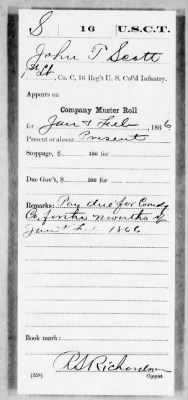 S 16 U.S.C.T.
John T Scott
1st Lt., Co. C, 16 Reg't U. S. Col'd Infantry.
Appears on
Company Muster Roll
for Jan & Feb, 1866
Present or absent Present
Stoppage, $ 100 for
Due Gov't, $ 100 for
Remarks: Pay due for Comdg
Co. for the months of
Jan & Feb 1866
Book mark:
R S Richardson
(358) Copyist.